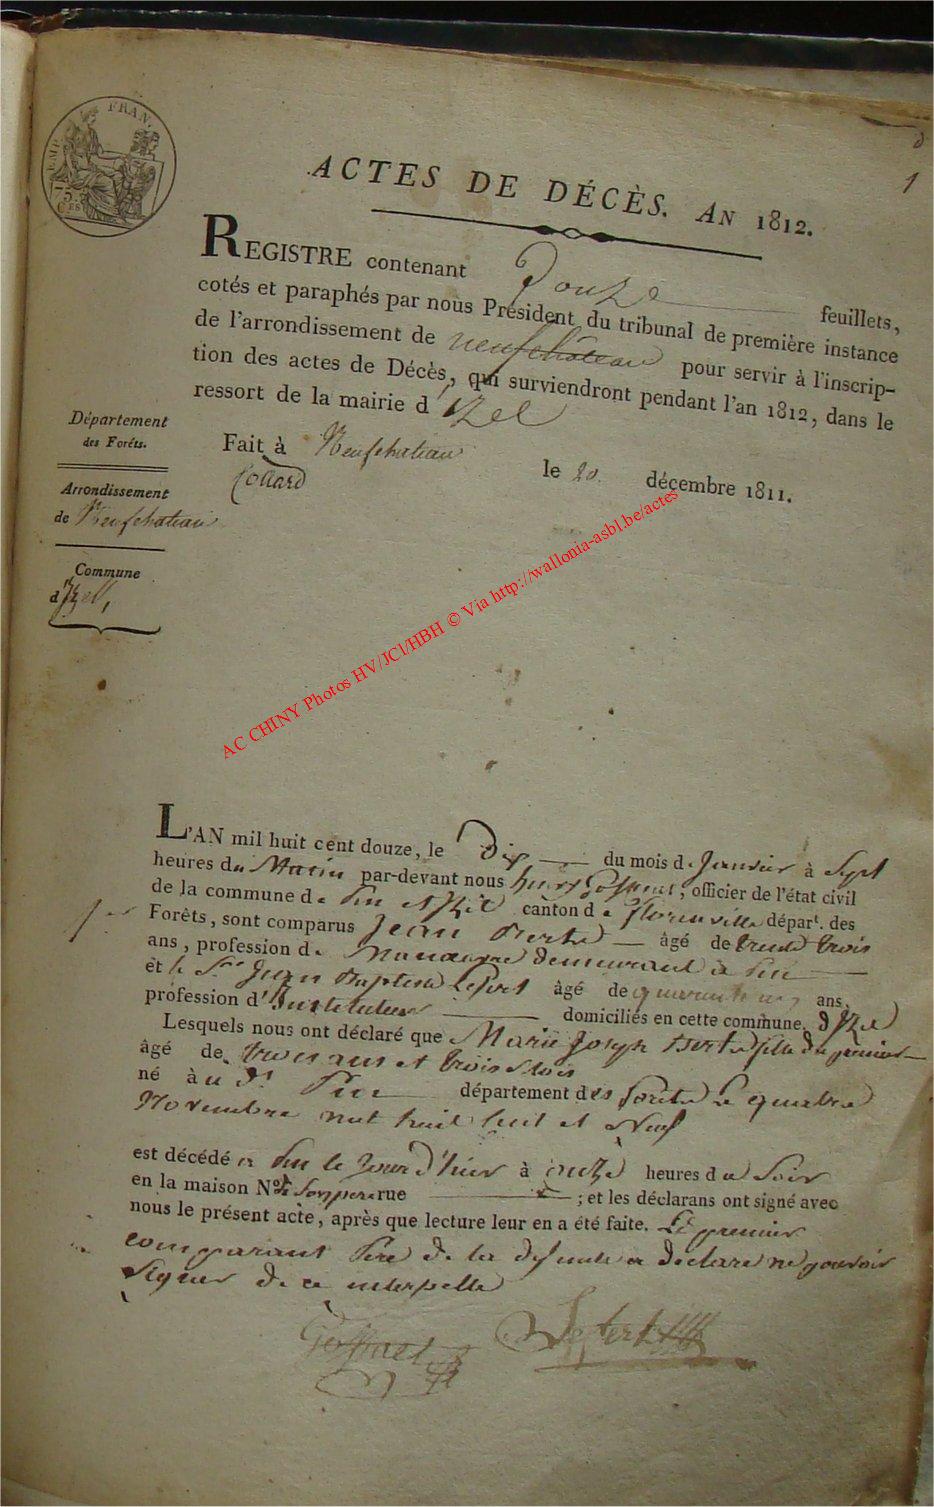 1
TIMP. FRAN.
75
CES
ACTES DE DÉCÈS. AN 1812.
REGISTRE contenant Douze feuillets,
cotés et paraphés par nous Président du tribunal de première instance
de l'arrondissement de neufchâteau pour servir à l'inscrip-
tion des actes de Décès, qui surviendront pendant l'an 1812, dans le
ressort de la mairie d'Izel
Fait à Neufchateau le 20. décembre 1811.
Collard
Département
des Forêts.
Arrondissement
de Neufchateau
Commune
d'Izell,
AC CHINY Photos HV/JCl/HBH © Via http://wallonia-asbl.be/actes
L'AN mil huit cent douze, le Dix du mois de Janvier à Sept
heures du Matin par-devant nous henry Goffinet, officier de l'état civil
de la commune de Pin et Izel canton de florenville départ. des
1er Forêts, sont comparus Jean Berte âgé de trente trois
ans, profession de Manoeuvre demeurant à Pin
et le Sr Jean Baptiste Lefert âgé de quarante ans,
profession d'Instituteur domiciliés en cette commune, d'Izel
Lesquels nous ont déclaré que Marie Joseph Berte fille du premier
âgé de trois ans et trois Mois
né à u dt Pin département des forêts Le quatre
Novembre mil huit Cent et Neuf
est décédé a Pin le Jour d'hier à onze heures du Soir
en la maison No de Son pere rue ; et les déclarans ont signé avec
nous le présent acte, après que lecture leur en a été faite. Le premier
comparant Père de la defunte a declaré ne pouvoir
Signer de ce interpellé
Goffinet Lefert